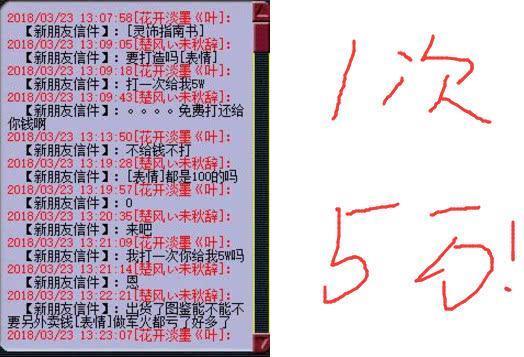 2018/03/23 13:07:58[花开淡墨巜叶]:
【新朋友信件】: [灵饰指南书]
2018/03/23 13:09:05[楚风い未秋辞]:
【新朋友信件】: 要打造吗[表情]
2018/03/23 13:09:18[花开淡墨巜叶]:
【新朋友信件】: 打一次给我5W
2018/03/23 13:09:43[楚风い未秋辞]:
【新朋友信件】: 。。。。免费打还给
你钱啊
2018/03/23 13:13:50[花开淡墨巜叶]:
【新朋友信件】: 不给钱不打
2018/03/23 13:19:28[楚风い未秋辞]:
【新朋友信件】: [表情]都是100的吗
2018/03/23 13:19:57[花开淡墨巜叶]:
【新朋友信件】: 0
2018/03/23 13:20:35[楚风い未秋辞]:
【新朋友信件】: 来吧
2018/03/23 13:21:09[花开淡墨巜叶]:
【新朋友信件】: 我打一次你给我5W吗
2018/03/23 13:21:14[楚风い未秋辞]:
【新朋友信件】: 恩
2018/03/23 13:22:21[楚风い未秋辞]:
【新朋友信件】: 出货了图鉴能不能不
要另外卖钱[表情]做军火都亏了好多了
2018/03/23 13:23:07[花开淡墨巜叶]:
1次
5万!